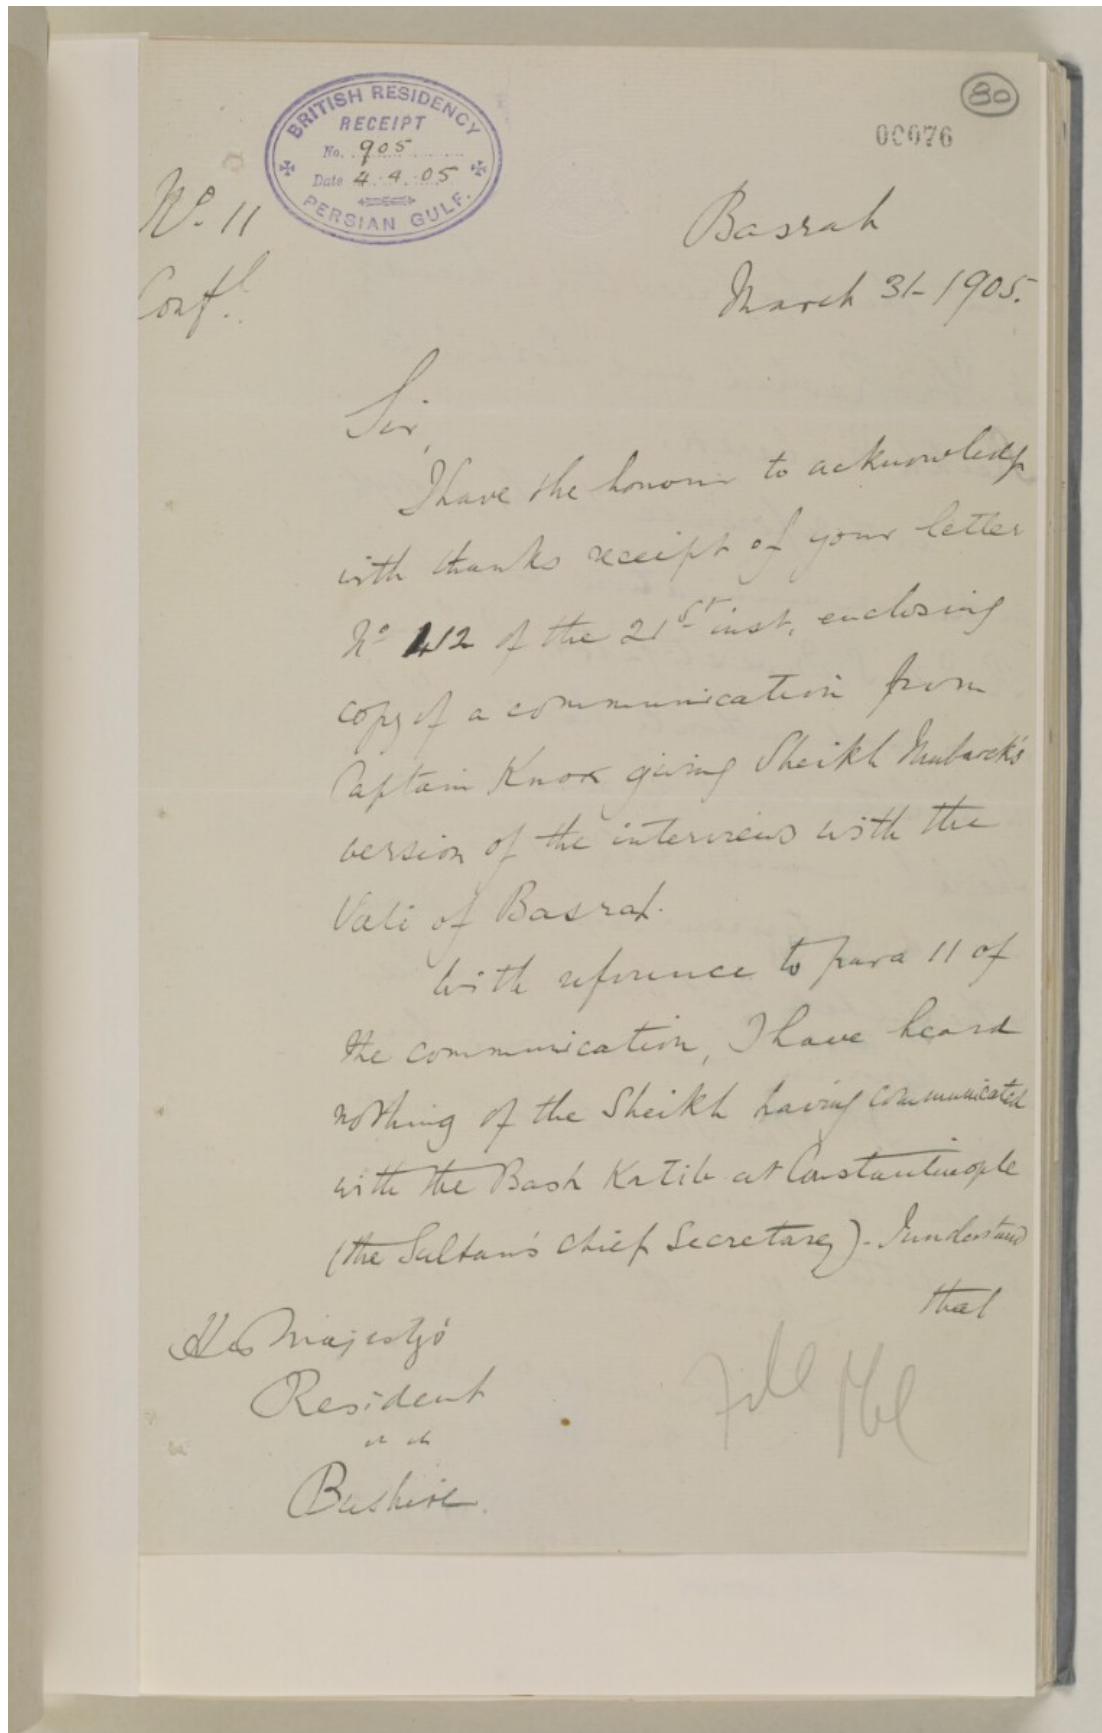 80
00076
BRITISH RESIDENCY
RECEIPT
No. 905
Date 4.4.05
PERSIAN GULF.
No. 11
Confl.
Basrah
March 31-1905.
Sir,
I have the honour to acknowledge
with thanks receipt of your letter
No 412 of the 21st inst, enclosing
copy of a communication from
Captain Knox giving Sheikh Mubarek's
version of the interviews with the
Vali of Basrah.
With reference to para 11 of
the communication, I have heard
nothing of the Sheikh having communicated
with the Bash Katib at Constantinople
(the Sultan's Chief Secretary). I understand
that
His Majesty's
Resident
Bushire.
File